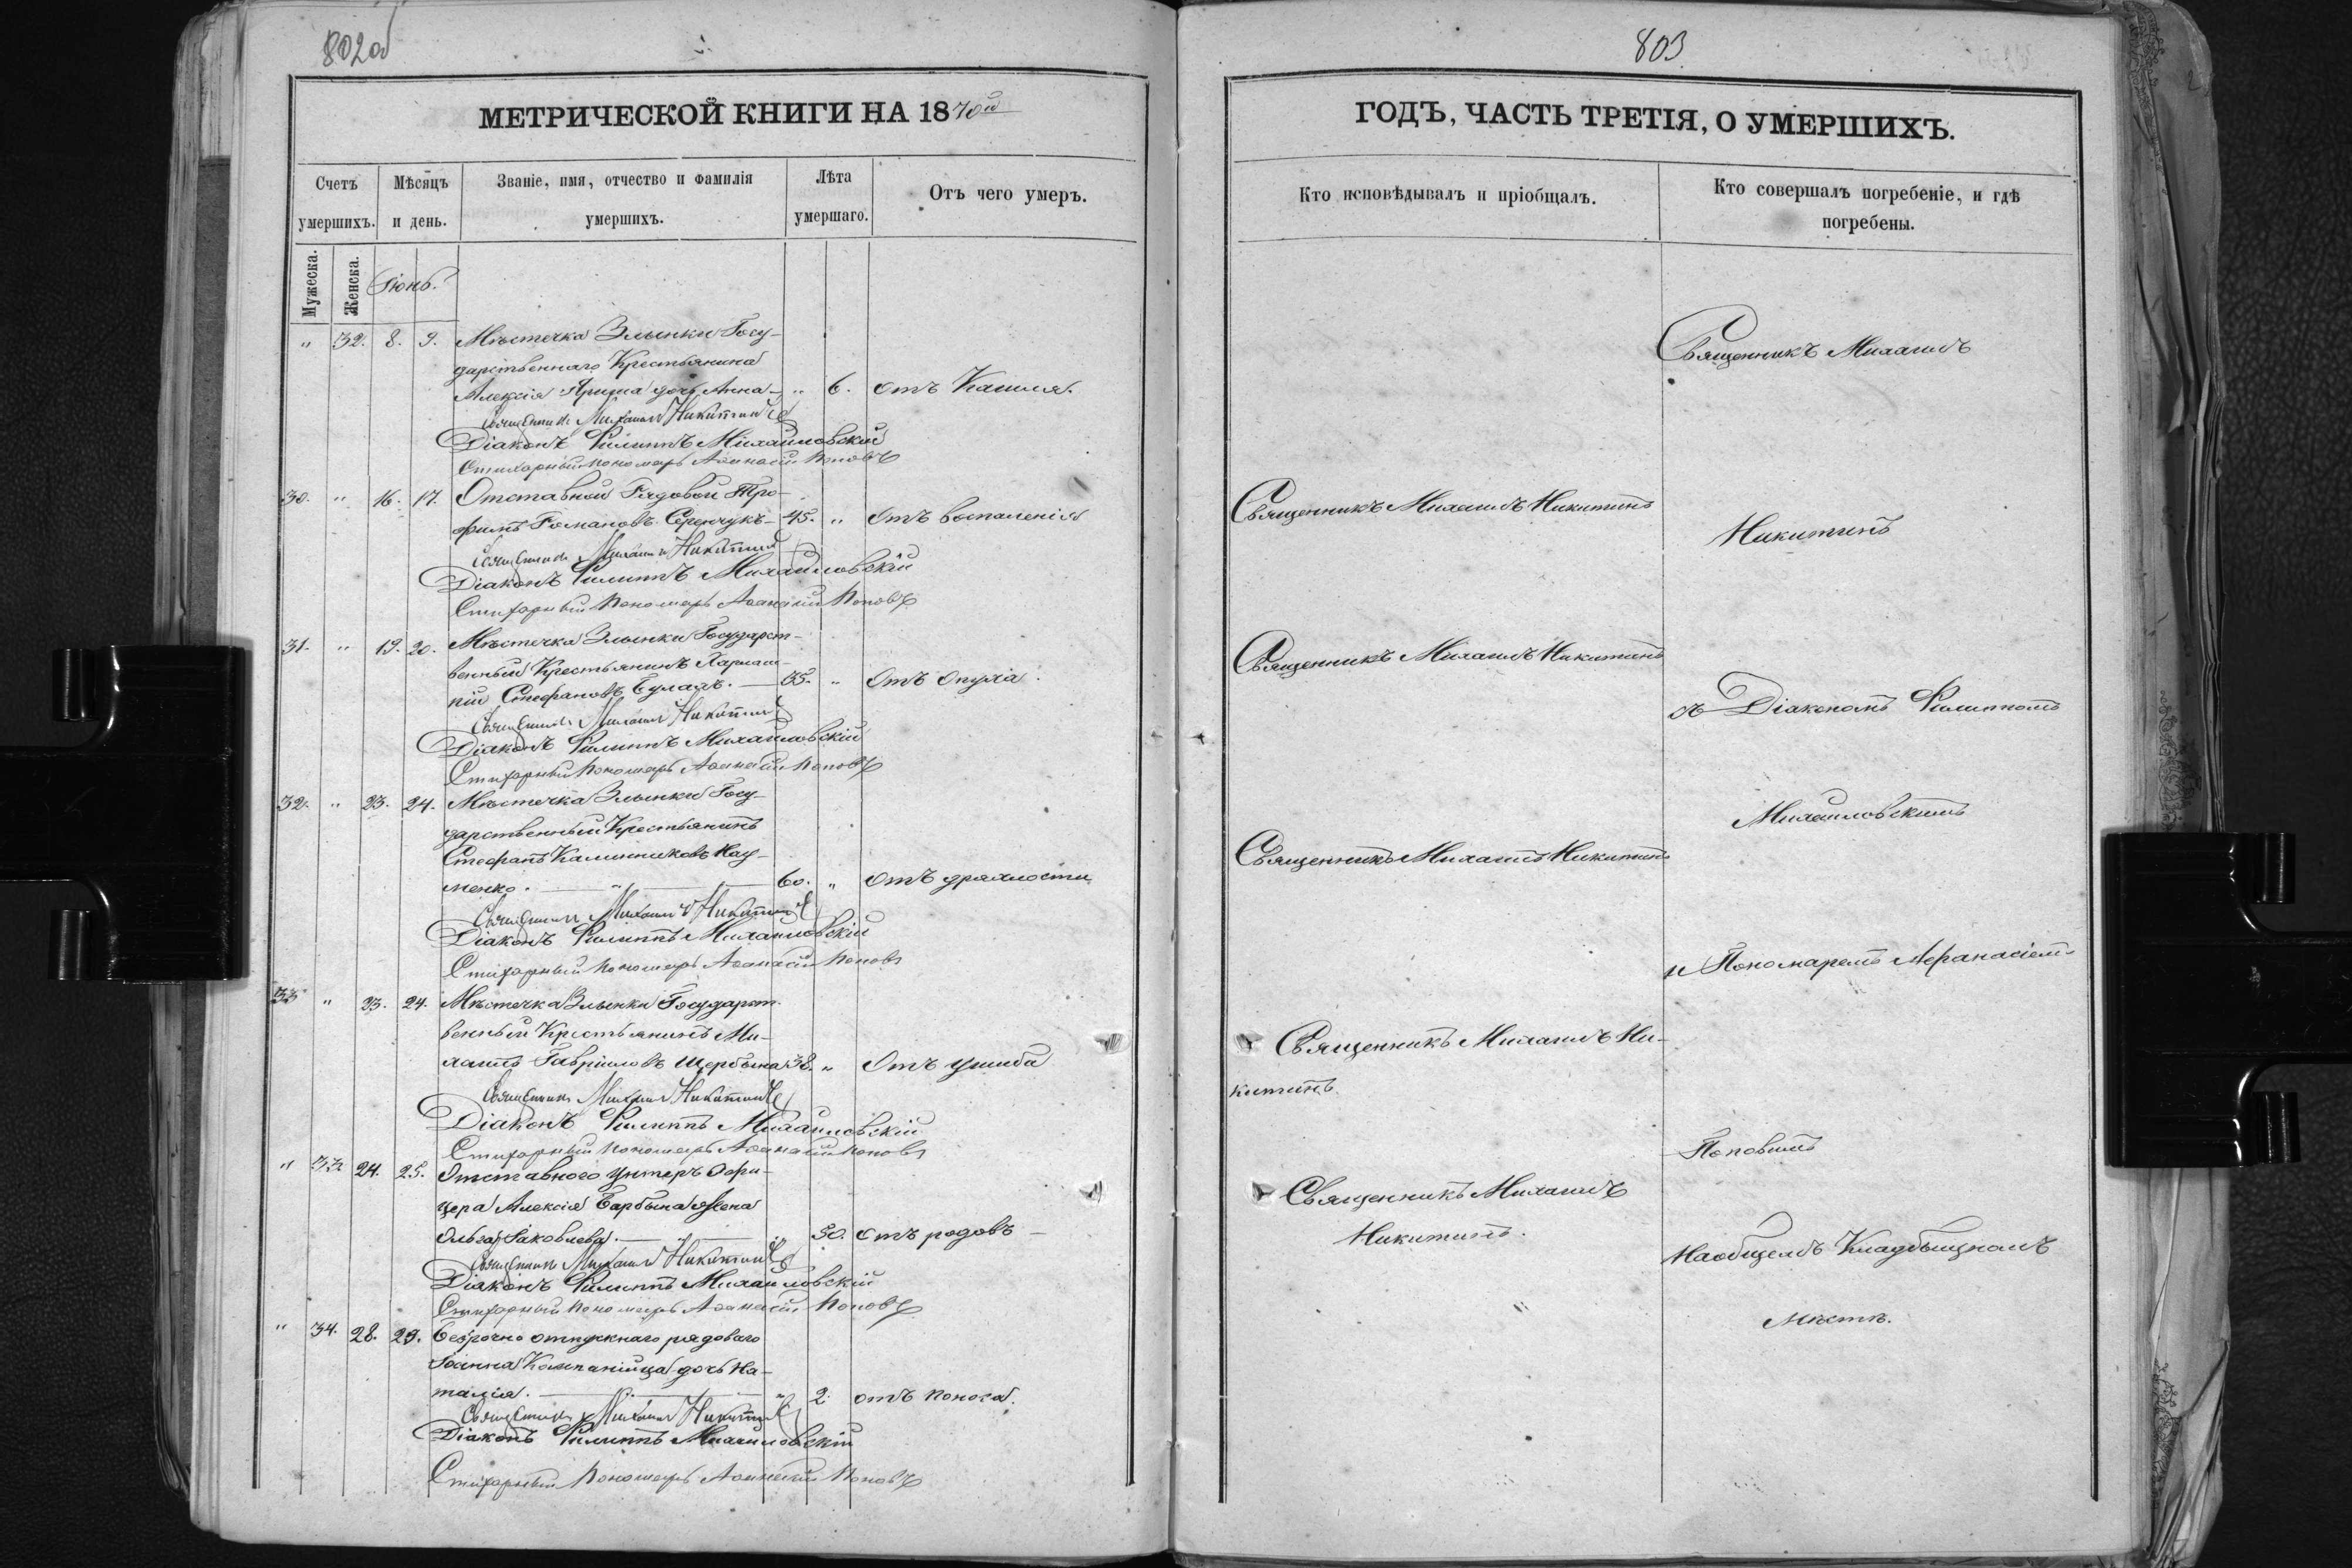 802об
МЕТРИЧЕСКОЙ КНИГИ НА 1870й
Счетъ умершихъ.
Мѣсяцъ и день.
Званіе, имя, отчество и фамилія умершихъ.
Лѣта умершаго.
Отъ чего умеръ.
Мужеска.
Женска.
Іюнь.
" 32. 8. 9. Мѣстечка Злынки Госу-
дарственнаго Крестьянина
Алексія дочь Анна " 6. отъ Кашля.
Священникъ Михаилъ Никитинъ
Діаконъ Филиппъ Михайловскій
Стихарный пономарь Аѳанасій Поповъ
30. " 16. 17. Отставной Рядовой Тро-
фимъ Романовъ Серенчукъ 45. " Отъ воспаленія
Священникъ Михаилъ Никитинъ
Діаконъ Филиппъ Михайловскій
Стихарный Пономарь Аѳанасій Поповъ
31. " 19. 20. Мѣстечка Злынки Государст-
венный Крестьянинъ Харлам-
пій Стефановъ Булахъ. 65. " Отъ опуха.
Священникъ Михаилъ Никитинъ
Діаконъ Филиппъ Михайловскій
Стихарный Пономарь Аѳанасій Поповъ
32. " 23. 24. Мѣстечка Злынки Госу-
дарственный Крестьянинъ
Стефанъ Калинниковъ Нау-
менко. " 60. " отъ дряхлости
Священникъ Михаилъ Никитинъ
Діаконъ Филиппъ Михайловскій
Стихарный Пономарь Аѳанасій Поповъ
33 " 23. 24. Мѣстечка Злынки Государст-
венный Крестьянинъ Ми-
хаилъ Гавріиловъ Щербина 38. " Отъ ушиба
Священникъ Михаилъ Никитинъ
Діаконъ Филиппъ Михайловскій
Стихарный Пономарь Аѳанасій Поповъ
" 33 24. 25. Отставного Унтеръ Офи-
цера Алексія Барбына жена
Ольга Іаковлева. " 30. отъ родовъ
Священникъ Михаилъ Никитинъ
Діаконъ Филиппъ Михайловскій
Стихарный Пономарь Аѳанасій Поповъ
" 34. 28. 29. безсрочно отпускнаго рядоваго
Іоанна Компанійца дочь На-
талія. " 2. отъ поноса.
Священникъ Михаилъ Никитинъ
Діаконъ Филиппъ Михайловскій
Стихарный Пономарь Аѳанасій Поповъ
803
ГОДЪ, ЧАСТЬ ТРЕТІЯ, О УМЕРШИХЪ.
Кто исповѣдывалъ и пріобщалъ.
Кто совершалъ погребеніе, и гдѣ погребены.
Священникъ Михаилъ
Священникъ Михаилъ Никитинъ
Никитинъ
Священникъ Михаилъ Никитинъ
съ Діакономъ Филиппомъ
Михайловскимъ
Священникъ Михаилъ Никитинъ
и Пономаремъ Афанасіемъ
Священникъ Михаилъ Ни-
китинъ.
Поповымъ
Священникъ Михаилъ
Никитинъ.
На общемъ Кладбищномъ
мѣстѣ.